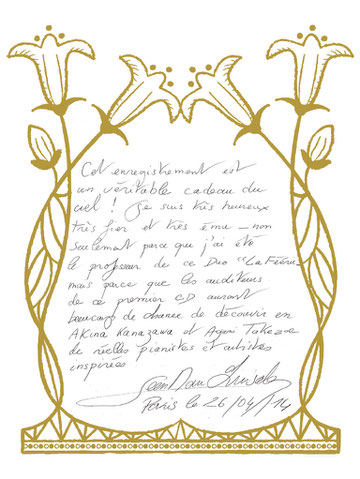 Cet enregistrement est
un véritable cadeau du
ciel ! Je suis très heureux
très fier et très ému _ non
seulement parce que j'ai été
le professeur de ce Duo "La Féerie"
mais parce que les auditeurs
de ce premier CD auront
beaucoup de chance de découvrir en
AKina Kanazawa et Ayami Takezoe
de réelles pianistes et artistes
inspirées
Paris le 26/04/14